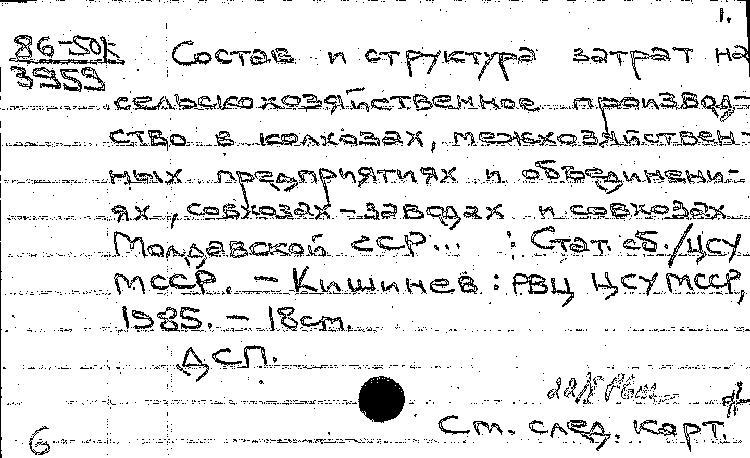 1.
86-50к Состав и структура затрат на
3959
сельскохозяйственное производ-
ство в колхозах, межхозяйствен-
ных предприятиях и объединени-
ях, совхозах-заводах и совхозах
Молдавской ССР... : Стат. сб./ЦСУ
МССР. – Кишинев : РВЦ ЦСУ МССР,
1985. – 18см.
ДСП.
См. след. карт.
6